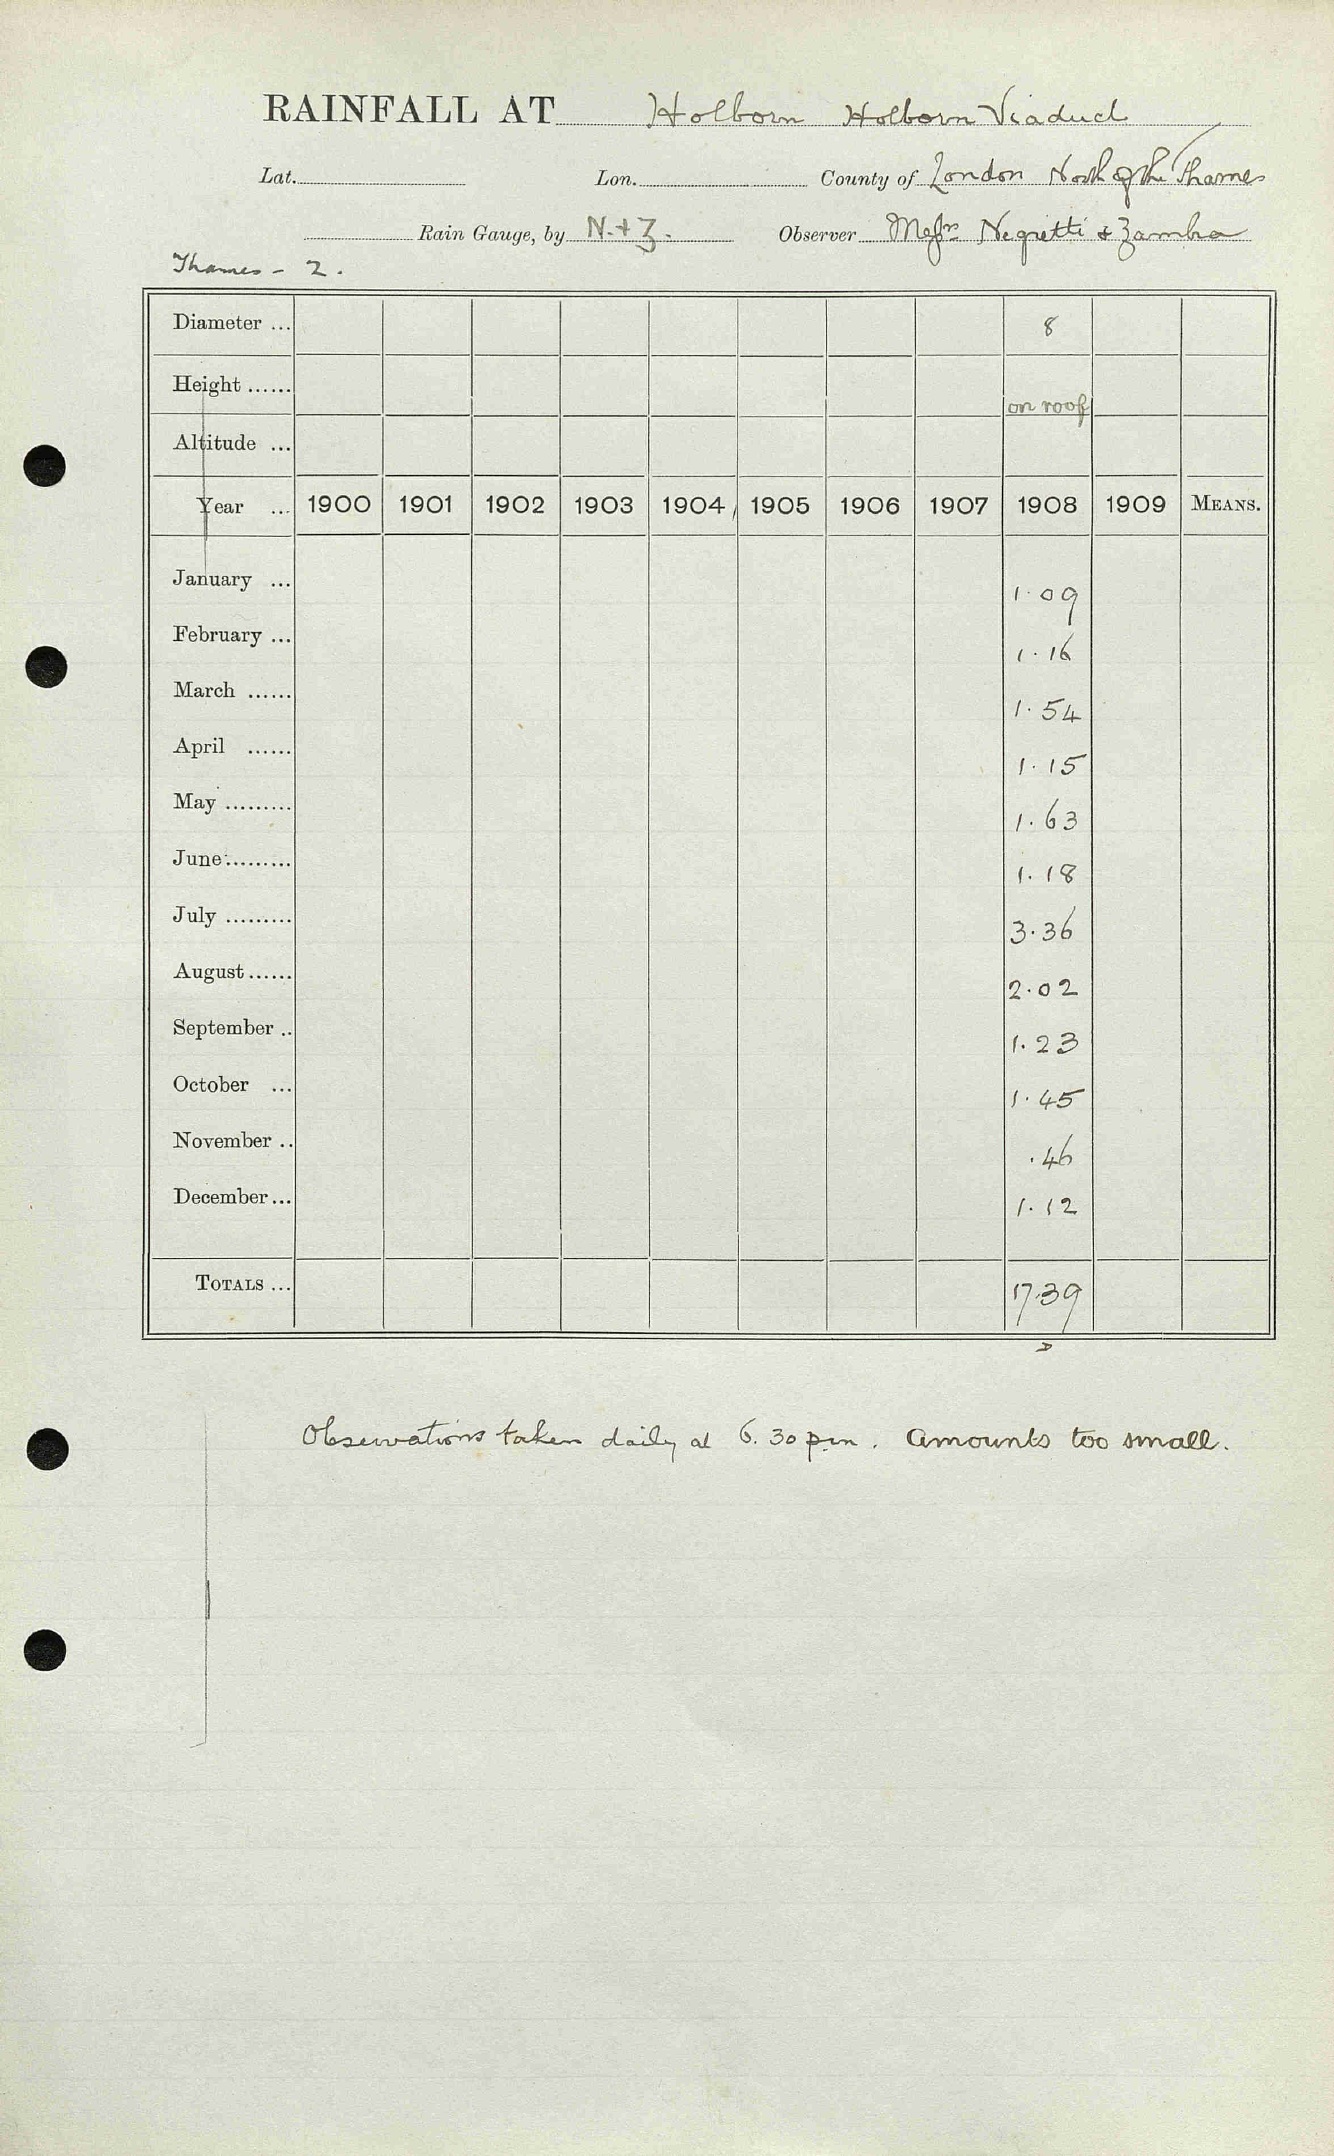 RAINFALL AT Holborn Holborn Viaduct
Lat. Lon. County of London North of the Thames
Rain Gauge, by N. & Z. Observer Messrs Negretti & Zambra
Thames - 2.
Diameter ... 8
Height ...... on roof
Altitude ...
Year ... 1900 1901 1902 1903 1904 1905 1906 1907 1908 1909 MEANS.
January ... 1.09
February ... 1.16
March ...... 1.54
April ...... 1.15
May ......... 1.63
June ......... 1.18
July ......... 3.36
August ...... 2.02
September .. 1.23
October ... 1.45
November .. .46
December ... 1.12
TOTALS ... 17.39
Observations taken daily at 6.30 pm. Amounts too small.